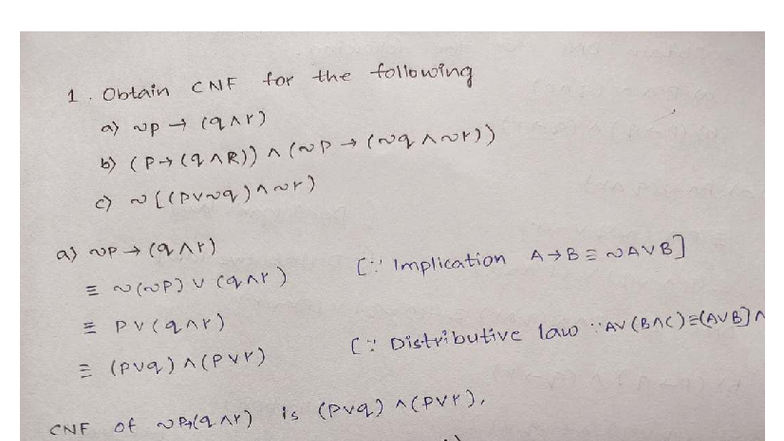 1. Obtain CNF for the following
a) ~p → (q∧r)
b) (P→(q∧R)) ∧ (~P → (~q ∧ ~r))
c) ~[(p∨~q)∧~r)
a) ~p → (q∧r)
≡ ~(~p) ∨ (q∧r) [∵ Implication A→B ≡ ~A∨B]
≡ P∨(q∧r)
≡ (p∨q)∧(p∨r) [∵ Distributive law ∵ A∨(B∧C)≡(A∨B]∧
CNF of ~P→(q∧r) is (p∨q)∧(p∨r),